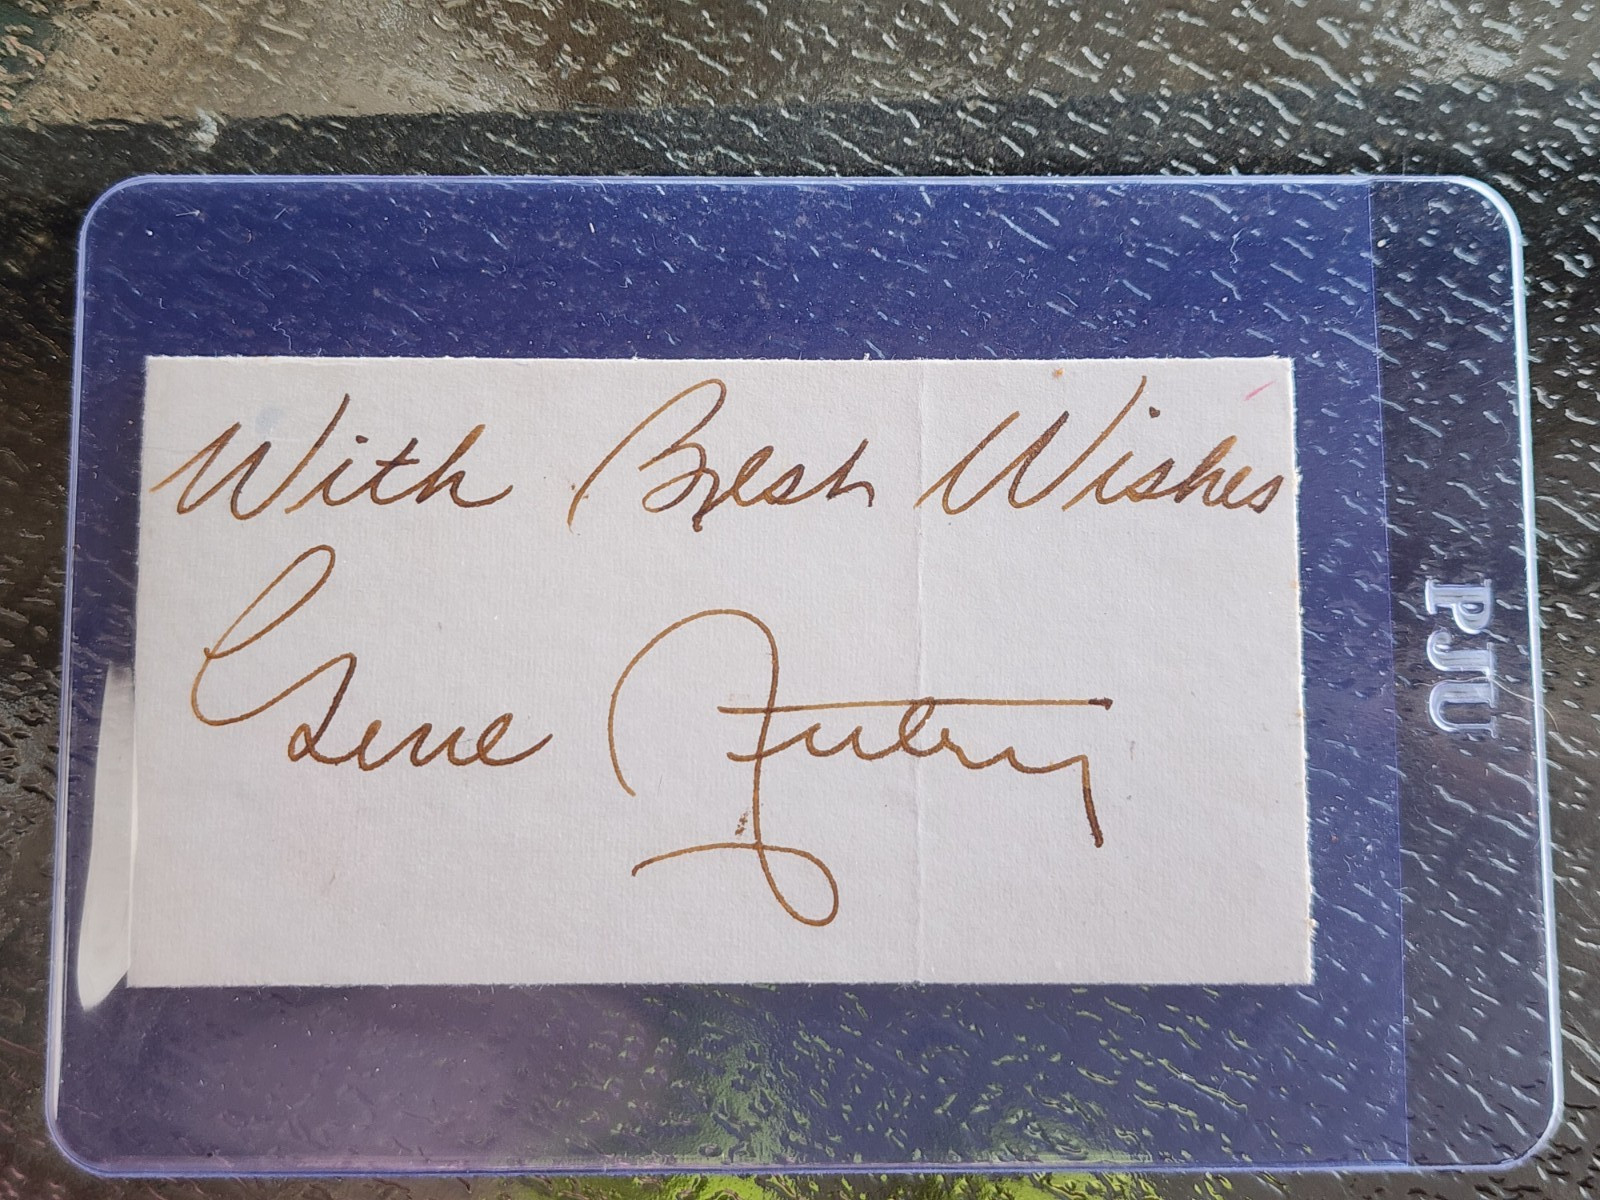 With Best Wishes
Gene Autry
PJU